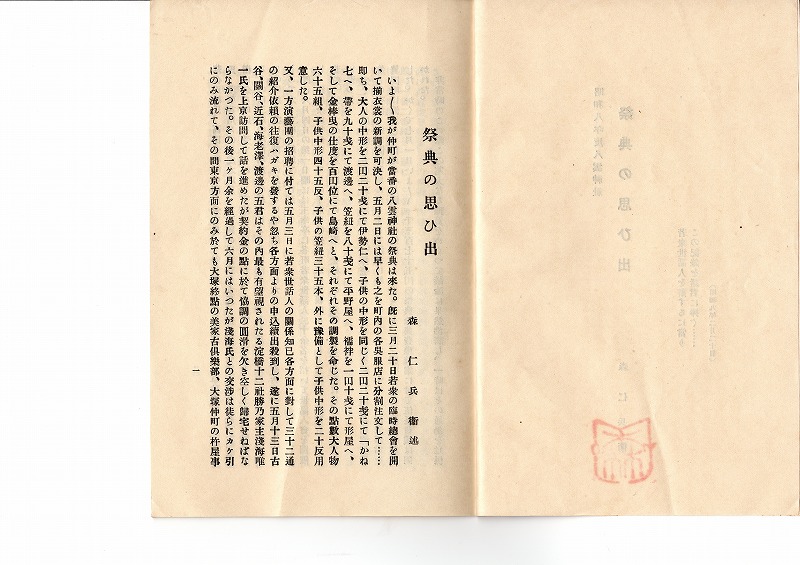 祭典の思ひ出
森仁兵衞述
いよ〱我が仲町が當番の八雲神社の祭典は來た。旣に三月二十日若衆の臨時總會を開
いて揃衣裳の新調を可決し、五月二日には早くも之を町內の各吳服店に分割注文して……
卽ち、大人の中形を二円二十戔にて伊勢仁へ、子供の中形を同じく二円二十戔にて「かね
七へ、帶を九十戔にて渡邊へ、笠紐を八十戔にて平野屋へ、襦袢を一円十戔にて形屋へ、
そして金棒曳の仕度を百円位にて島崎へと、それぞれその調製を命じた。その點數大人物
六十五組、子供中形四十五反、子供の笠紐三十五本、外に豫備として子供中形を二十反用
意した。
又、一方演藝團の招聘に付ては五月三日に若衆世話人の關係知己各方面に對して三十二通
の紹介依賴の往復ハガキを發するや忽ち各方面よりの申込續出殺到し、遂に五月十三日古
谷、關谷、近石、海老澤、渡邊の五君はその內最も有望視されたる淀橋十二社勝乃家主淺海唯
一氏を上京訪問して話を進めたが契約金の點に於て協調の圓滑を欠き空しく歸宅せねばな
らなかつた。その後一ケ月余を經過して六月にはいつたが淺海氏との交涉は徒らにカケ引
にのみ流れて、その間東京方面にのみ於ても大塚終點の美家古俱樂部、大塚仲町の杵屋事
一